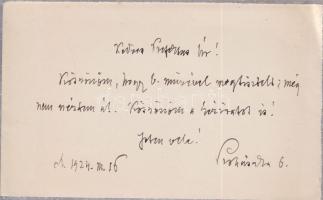 Kedves Professor Úr!
Köszönöm, hogy b. művével megtisztelt; még
nem néztem át. Köszönöm a kéziratot is!
Isten vele!
1924. III. 16 Prohászka O.